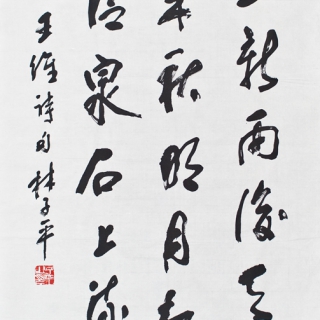 新雨後天
来秋明月
泉石上流
王维诗句 林子平